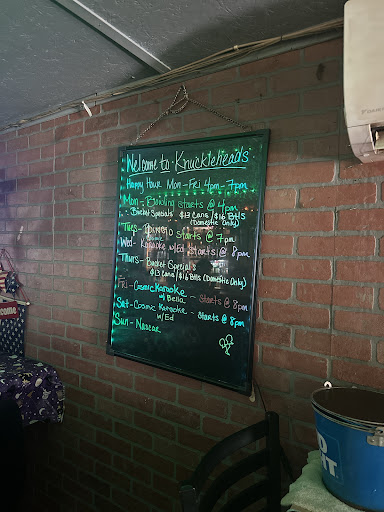 Welcome to Knuckleheads
Happy Hour Mon - Fri 4pm - 7pm
Mon - Bowling starts @ 4pm
- Bucket Specials $13 Cans / $16 Btls
(Domestic Only)
Tues - starts @ 7pm
Wed - Cosmic Karaoke w/Ed Starts @ 8pm
Thurs - Bucket Specials
$13 Cans / $16 Btls (Domestic Only)
Fri - Cosmic Karaoke - Starts @ 8pm
w/ Bella
Sat - Cosmic Karaoke - Starts @ 8pm
w/ Ed
Sun - Nascar